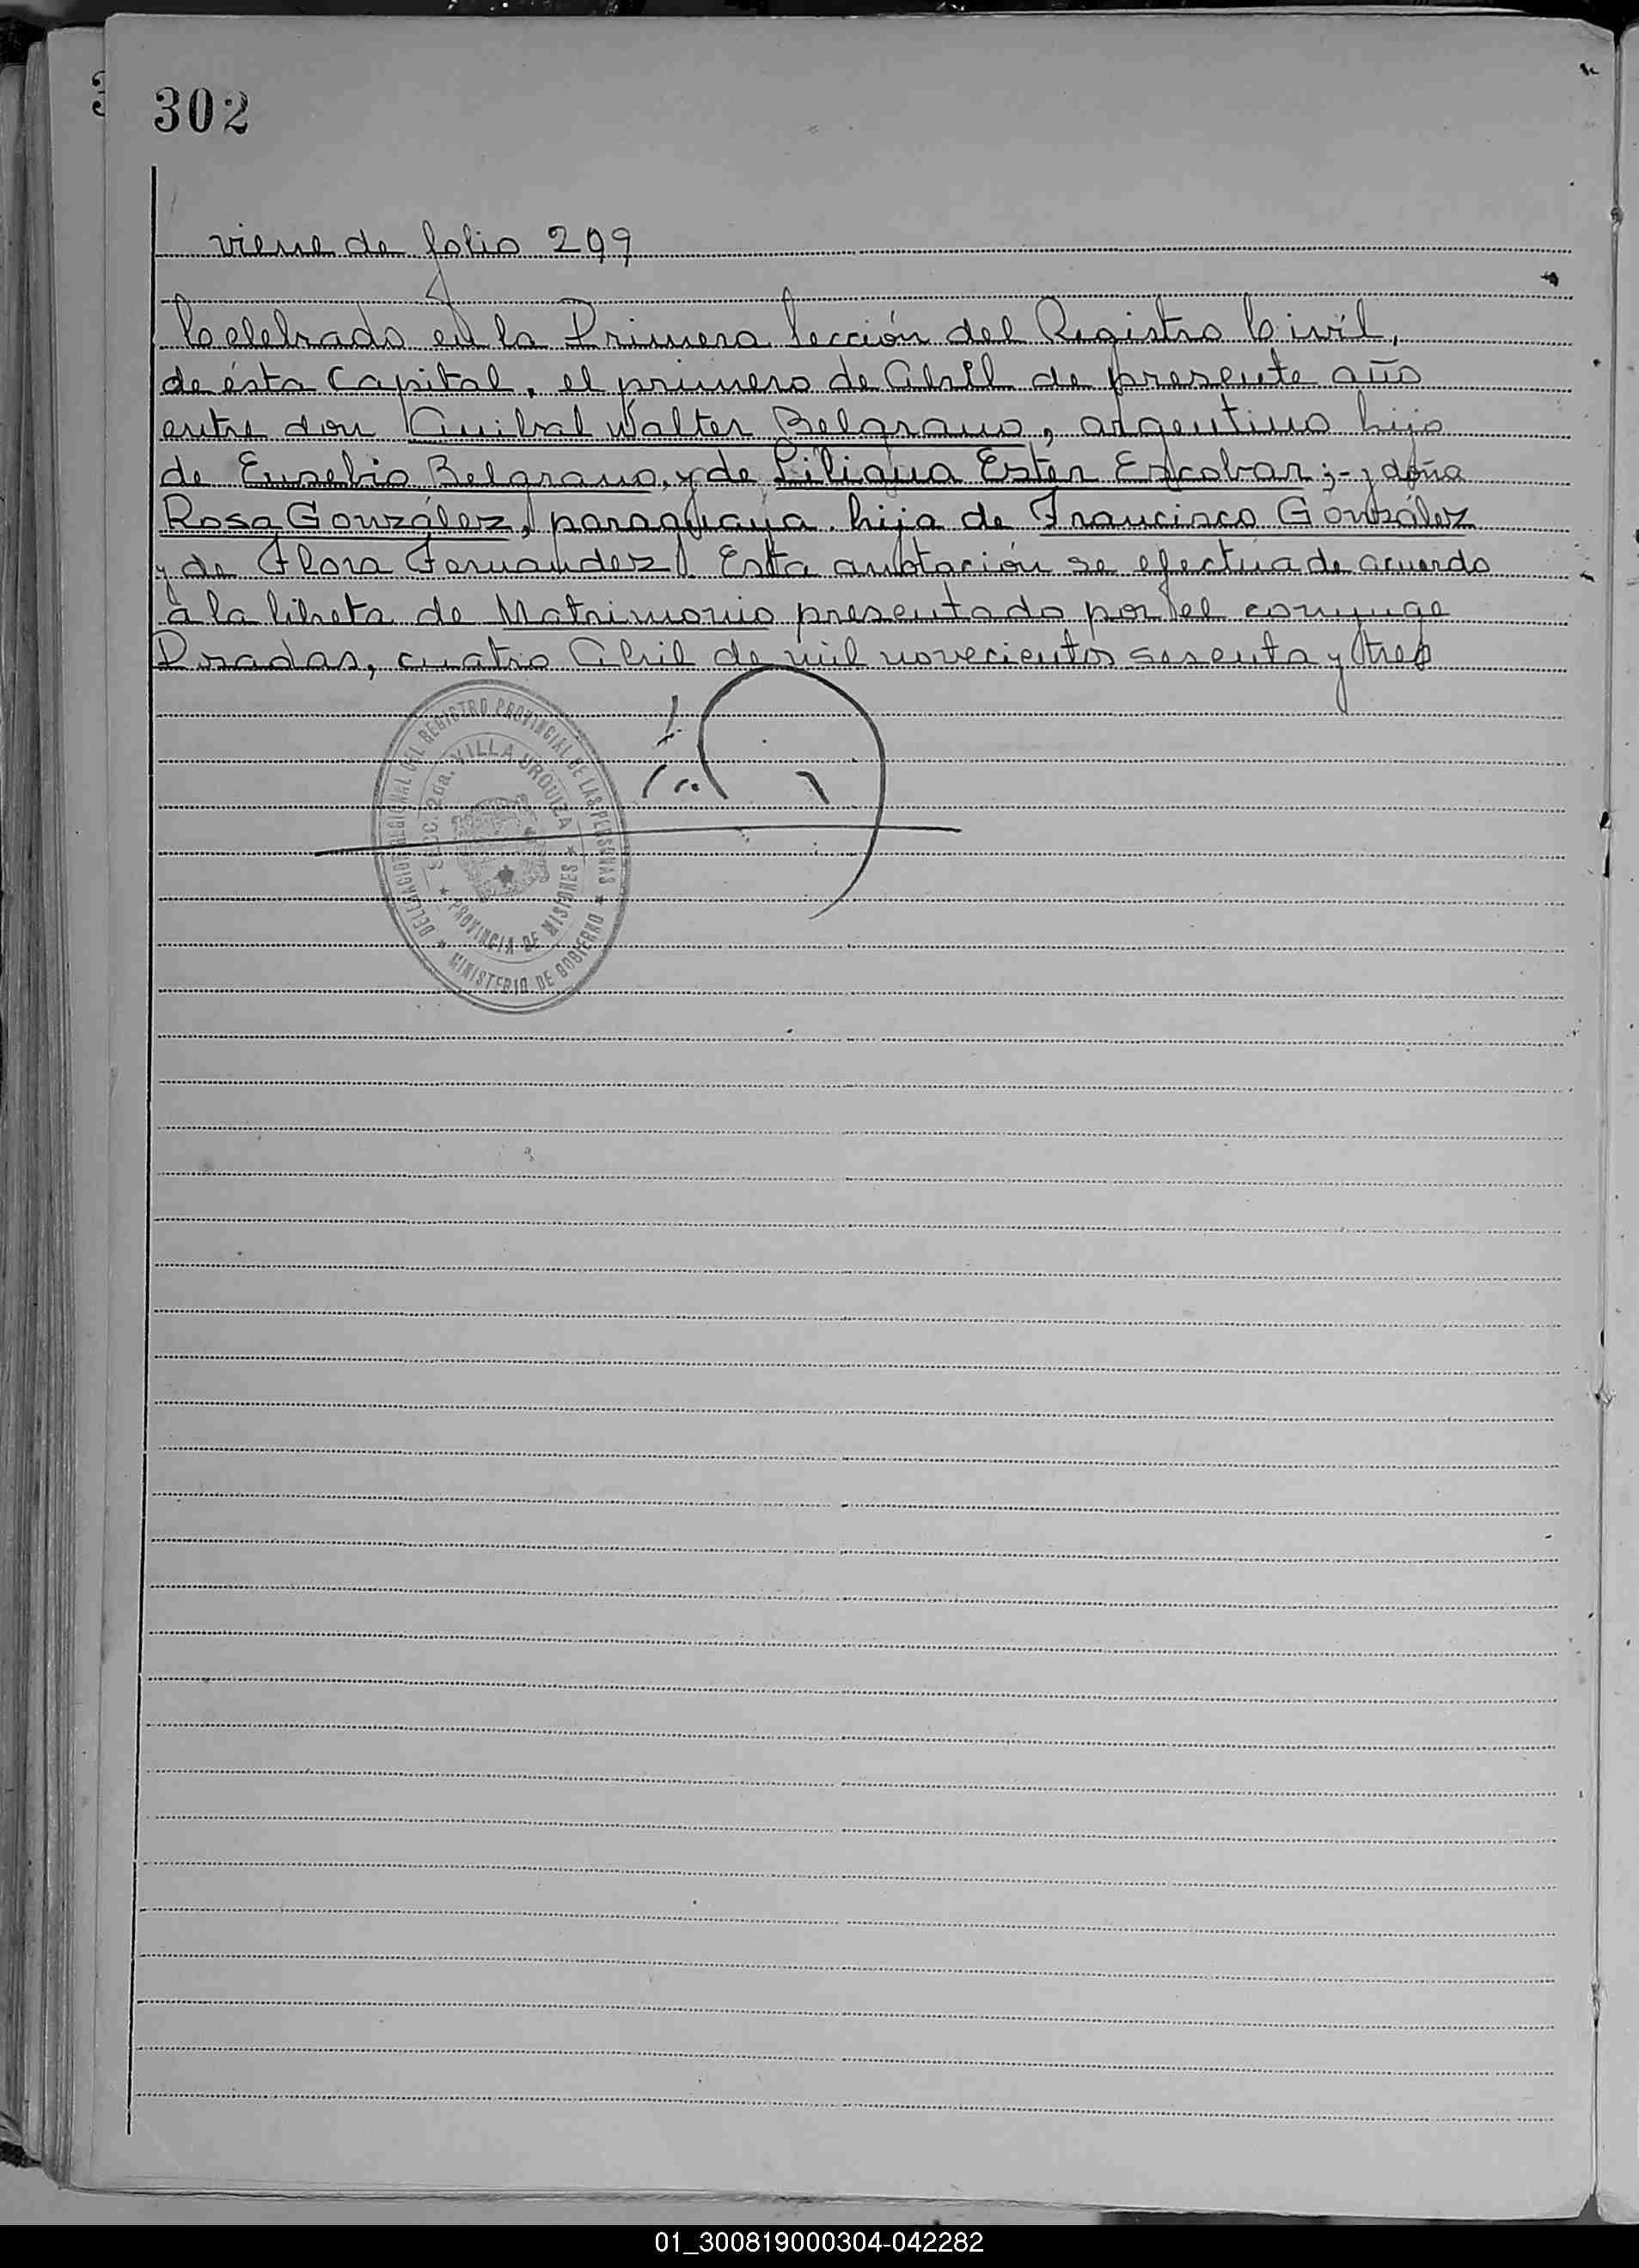 302
viene de folio 299
Celebrado en la Primera Sección del Registro Civil,
de ésta Capital, el primero de Abril de presente año
entre don Anibal Walter Belgrano, argentino hijo
de Eusebio Belgrano, y de Liliana Ester Escobar;- y doña
Rosa González, paraguaya. hija de Francisco González
y de Flora Fernandez. Esta anotación se efectúa de acuerdo
a la libreta de Matrimonio presentado por el conyuge
Posadas, cuatro Abril de mil novecientos sesenta y tres
DELEGACION REGIONAL DEL REGISTRO PROVINCIAL DE LAS PERSONAS
SECC. 2da. VILLA URQUIZA
PROVINCIA DE MISIONES
MINISTERIO DE GOBIERNO
01_300819000304-042282